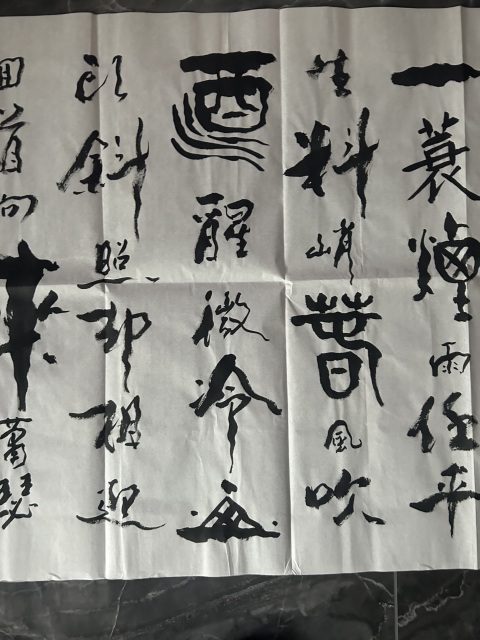 一蓑煙雨任平
生料峭春風吹
酒醒微冷山
頭斜照却相迎
回首向來蕭瑟